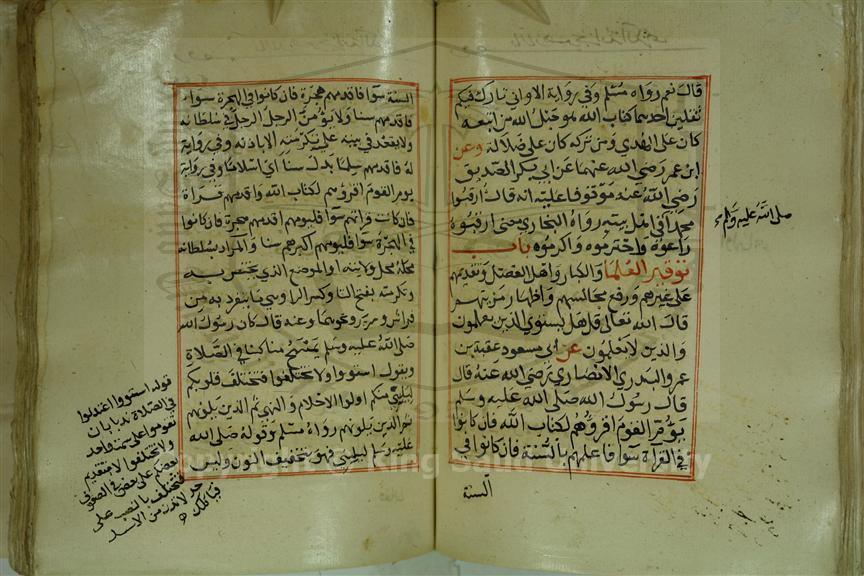 قال نعم رواه مسلم وفي رواية الا واني تارك فيكم
ثقلين احدهما كتاب الله هو حبل الله من اتبعه
كان على الهدي ومن تركه كان على ضلالة وعن
ابن عمر رضي الله عنهما عن ابي بكر الصديق
رضي الله عنه موقوفا عليه انه قال ارقبوا
محمدا في اهل بيته رواه البخاري معنى ارقبوه
راعوه واحترموه واكرموه باب
توقير العلما والكبار واهل الفضل وتقديمهم
على غيرهم ورفع مجالسهم واظهار مرتبتهم
قال الله تعالى قل هل يستوي الذين يعلمون
والذين لا يعلمون عن ابي مسعود عقبة بن
عمرو البدري الانصاري رضي الله عنه قال
قال رسول الله صلى الله عليه وسلم
يؤم القوم اقرؤهم لكتاب الله فان كانوا
في القراة سوا فاعلمهم بالسنة فان كانوا في
السنة
صلى الله عليه وسلم
السنة سوا فاقدمهم هجرة فان كانوا في الهجرة سواء
فاقدمهم سنا ولا يؤمن الرجل الرجل في سلطانه
ولا يقعد في بيته على تكرمته الا باذنه وفي رواية
له فاقدمهم سلما بدل سنا اي اسلاما وفي رواية
يوم القوم اقرؤهم لكتاب الله واقدمهم قراة
فان كانت قراتهم سوا فليومهم اقدمهم هجرة فان كانوا
في الهجرة سواء فليومهم اكبرهم سنا والمراد بسلطانه
محله محل ولايته او الموضع الذي يختص به
وتكرمته بفتح التا وكسر الرا وهي ما ينفرد به من
فراش وسرير ونحوهما وعنه قال كان رسول الله
صلى الله عليه وسلم يمسح مناكبنا في الصلاة
ويقول استووا ولا تختلفوا فتختلف قلوبكم
ليليني منكم اولوا الاحلام والنهى ثم الذين يلونهم
ثم الذين يلونهم رواه مسلم وقوله صلى الله
عليه وسلم ليليني هو بتخفيف النون وليس
قوله استووا اعتدلوا
في الصلاة بان
تقوموا على سمت واحد
ولا تختلفوا لا يتقدم
بعض على بعض في الصفوف
فتختلف بالنصب على
Copyright © King Saud University